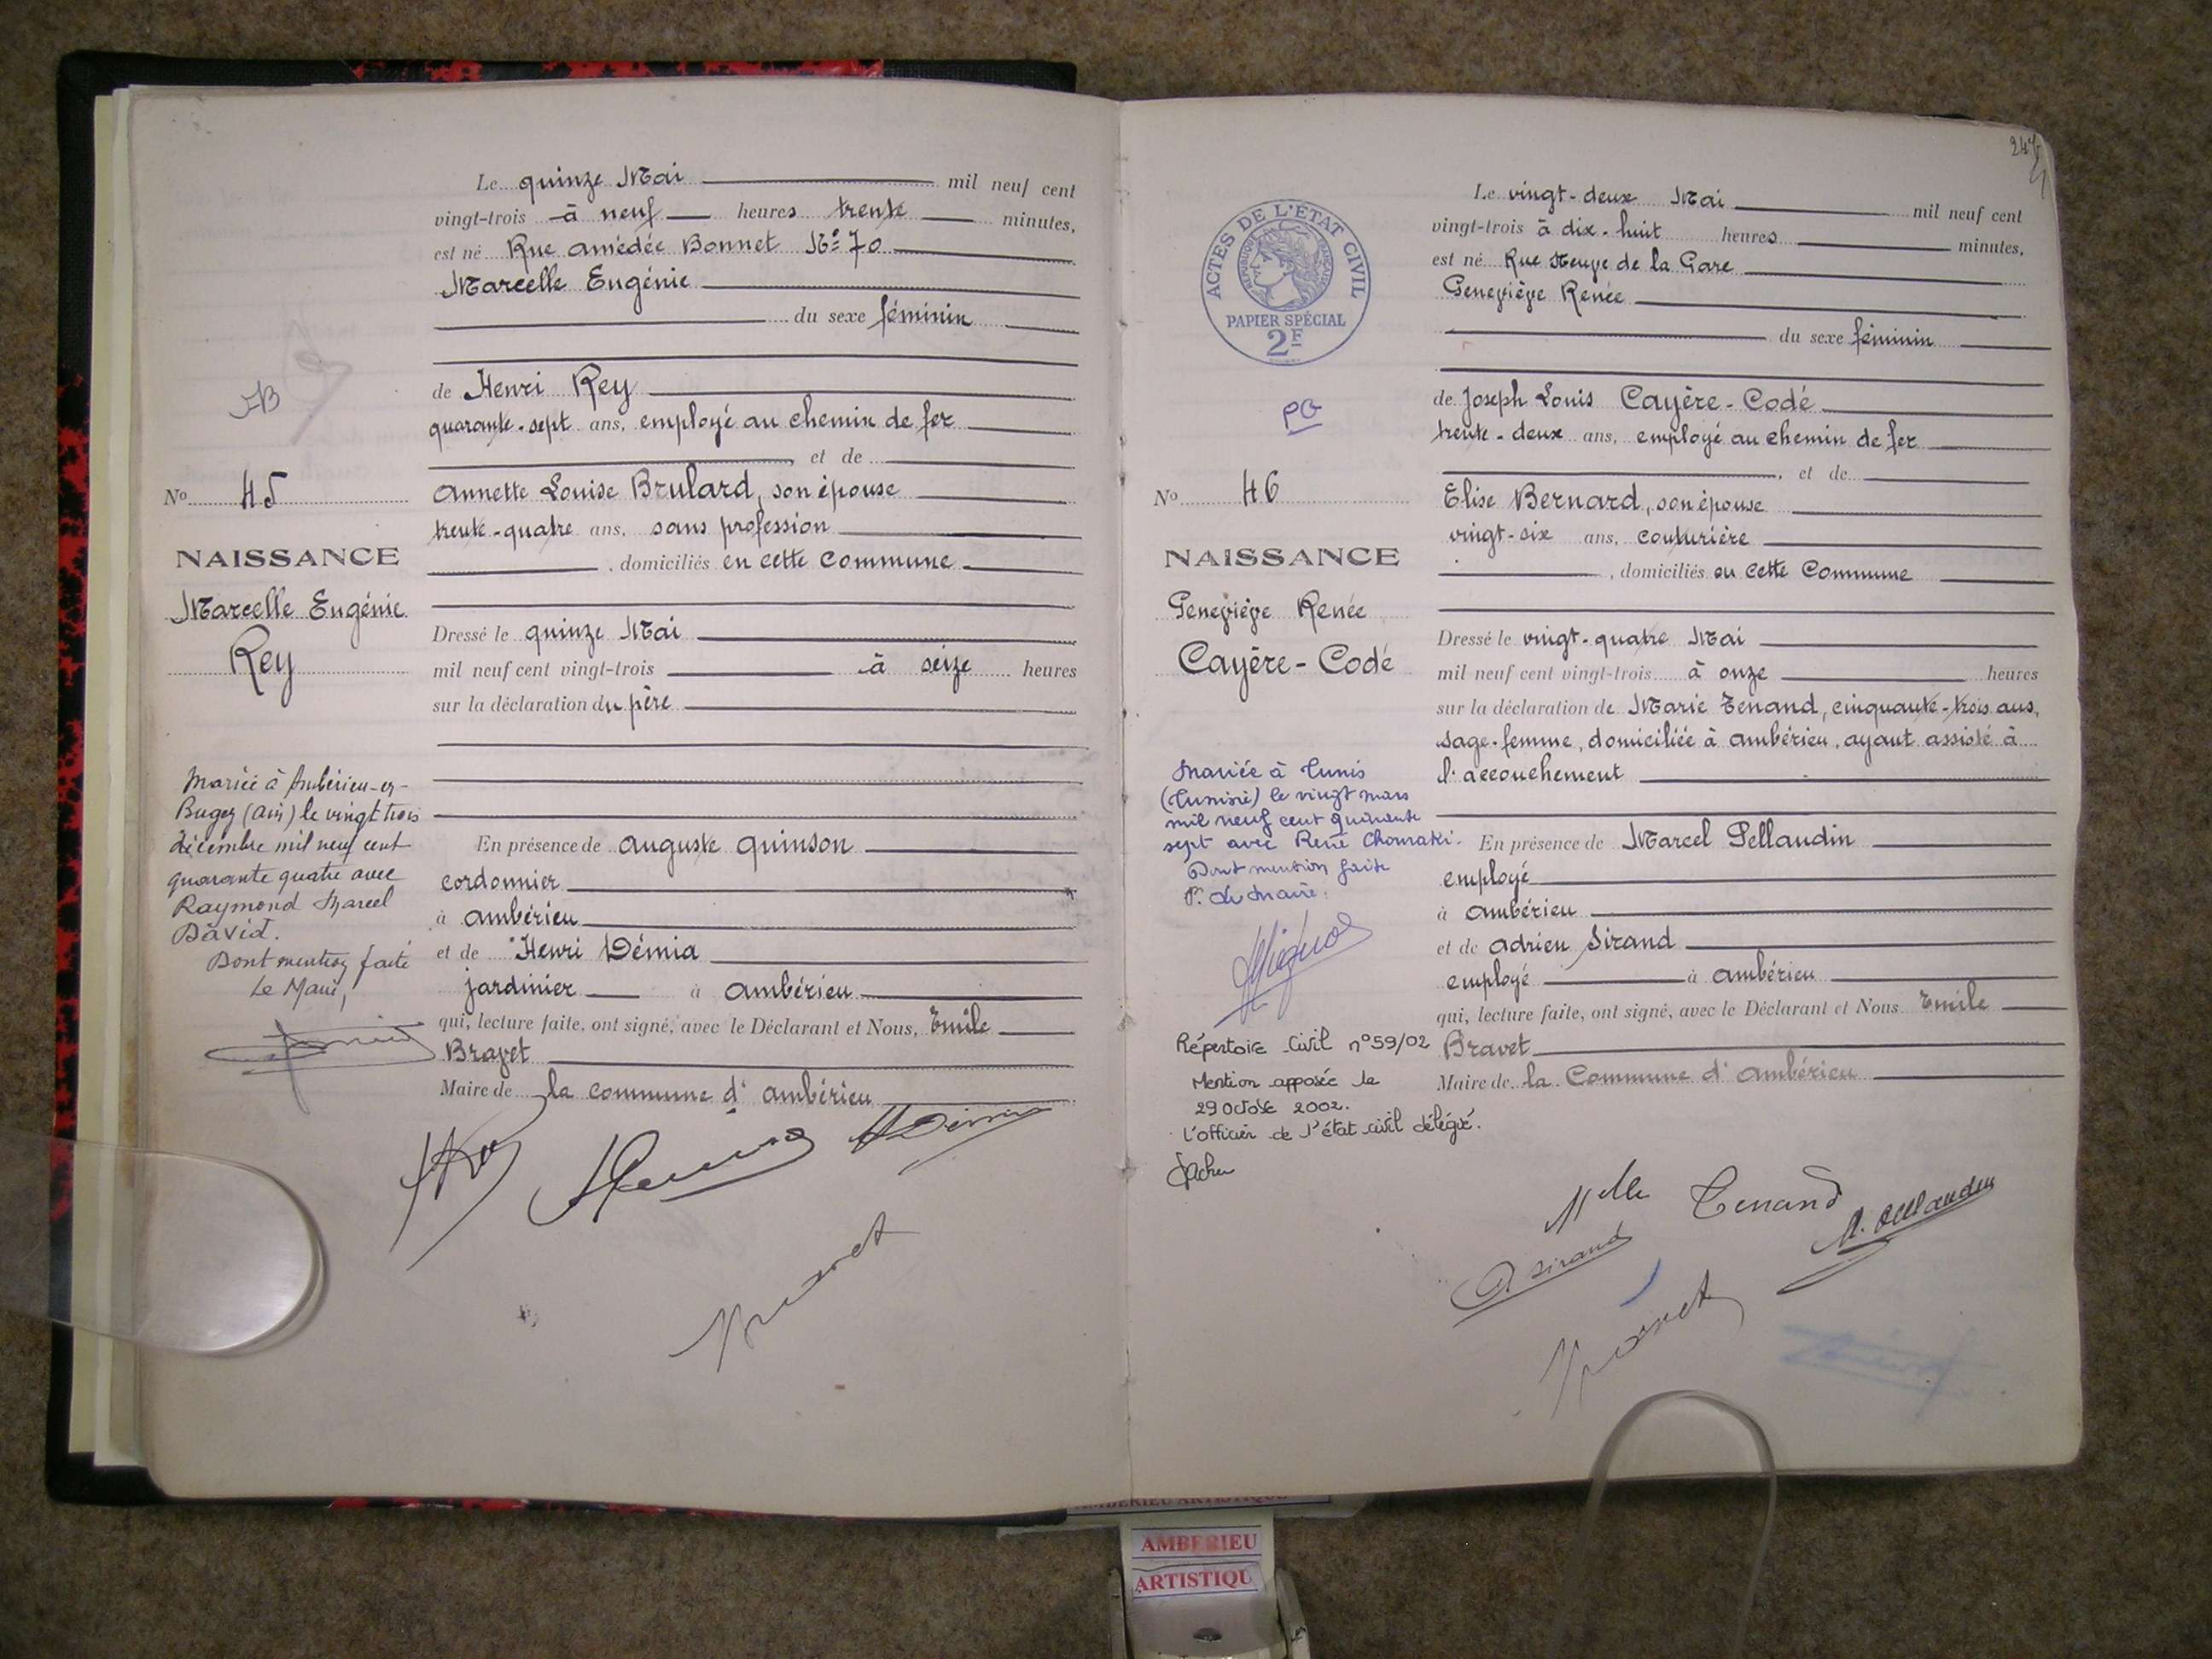 Le quinze Mai mil neuf cent
vingt-trois à neuf heures trente minutes,
est né Rue Amédée Bonnet N° 70
Marcelle Eugénie
du sexe féminin
de Henri Rey
quarante-sept ans, employé au chemin de fer
, et de
Annette Louise Brulard, son épouse
trente-quatre ans, sans profession
, domiciliés en cette Commune
Dressé le quinze Mai
mil neuf cent vingt-trois à seize heures
sur la déclaration du père
En présence de Auguste Quinson
cordonnier
à Ambérieu
et de Henri Démia
jardinier à Ambérieu
qui, lecture faite, ont signé, avec le Déclarant et Nous, Emile
Bravet
Maire de la Commune d'Ambérieu
HDémia
Bravet
N° 45
NAISSANCE
Marcelle Eugénie
Rey
Mariée à Ambérieu-en-
Bugey (Ain) le vingt trois
décembre mil neuf cent
quarante quatre avec
Raymond Marcel
David.
Dont mention faite
Le Maire,
Le vingt-deux Mai mil neuf cent
vingt-trois à dix-huit heures minutes,
est né Rue Neuve de la Gare
Geneviève Renée
du sexe féminin
de Joseph Louis Cayère-Codé
trente-deux ans, employé au chemin de fer
, et de
Elise Bernard, son épouse
vingt-six ans, couturière
, domiciliés en cette Commune
Dressé le vingt-quatre Mai
mil neuf cent vingt-trois à onze heures
sur la déclaration de Marie Tenand, cinquante-trois ans,
sage-femme, domiciliée à Ambérieu, ayant assisté à
l'accouchement
En présence de Marcel Pellaudin
employé
à Ambérieu
et de Adrien Sirand
employé à Ambérieu
qui, lecture faite, ont signé, avec le Déclarant et Nous Emile
Bravet
Maire de la Commune d'Ambérieu
Melle Tenand
A Sirand
Bravet
ACTES DE L'ETAT CIVIL
PAPIER SPÉCIAL
2F
N° 46
NAISSANCE
Geneviève Renée
Cayère-Codé
Mariée à Tunis
(Tunisie) le vingt mars
mil neuf cent quarante
sept avec René Chouraki.
Dont mention faite
Pr. Le Maire:
Répertoire Civil n°59/02
Mention apposée le
29 octobre 2002.
L'officier de l'état civil délégué.
AMBERIEU ARTISTIQUE
AMBERIEU
ARTISTIQU